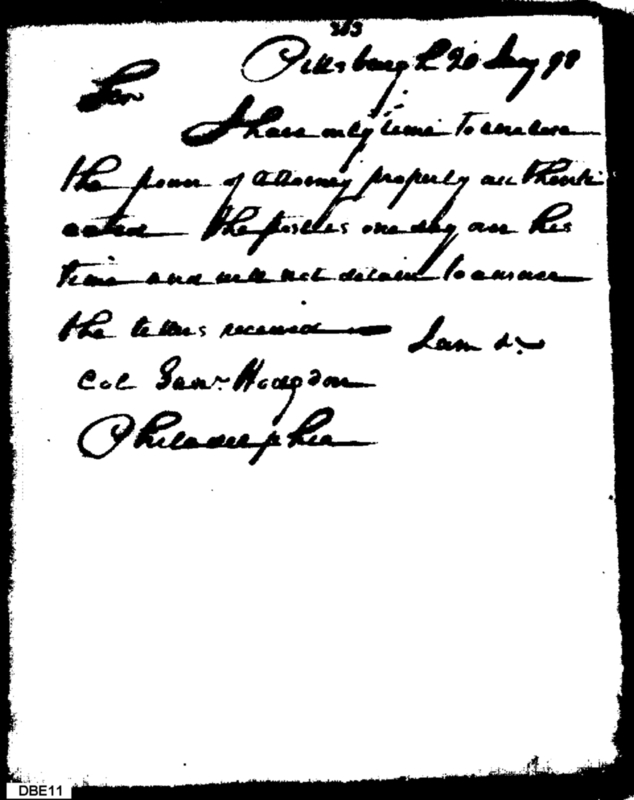 263
Pittsburgh 20 Jany 98
Sir
I have only time to enclose
the power of attorney properly authenti
cated the post is one day over his
time and will not detain to answer
the letters received
I am &c
Col Saml Hodgdon
Philadelphia
DBE11